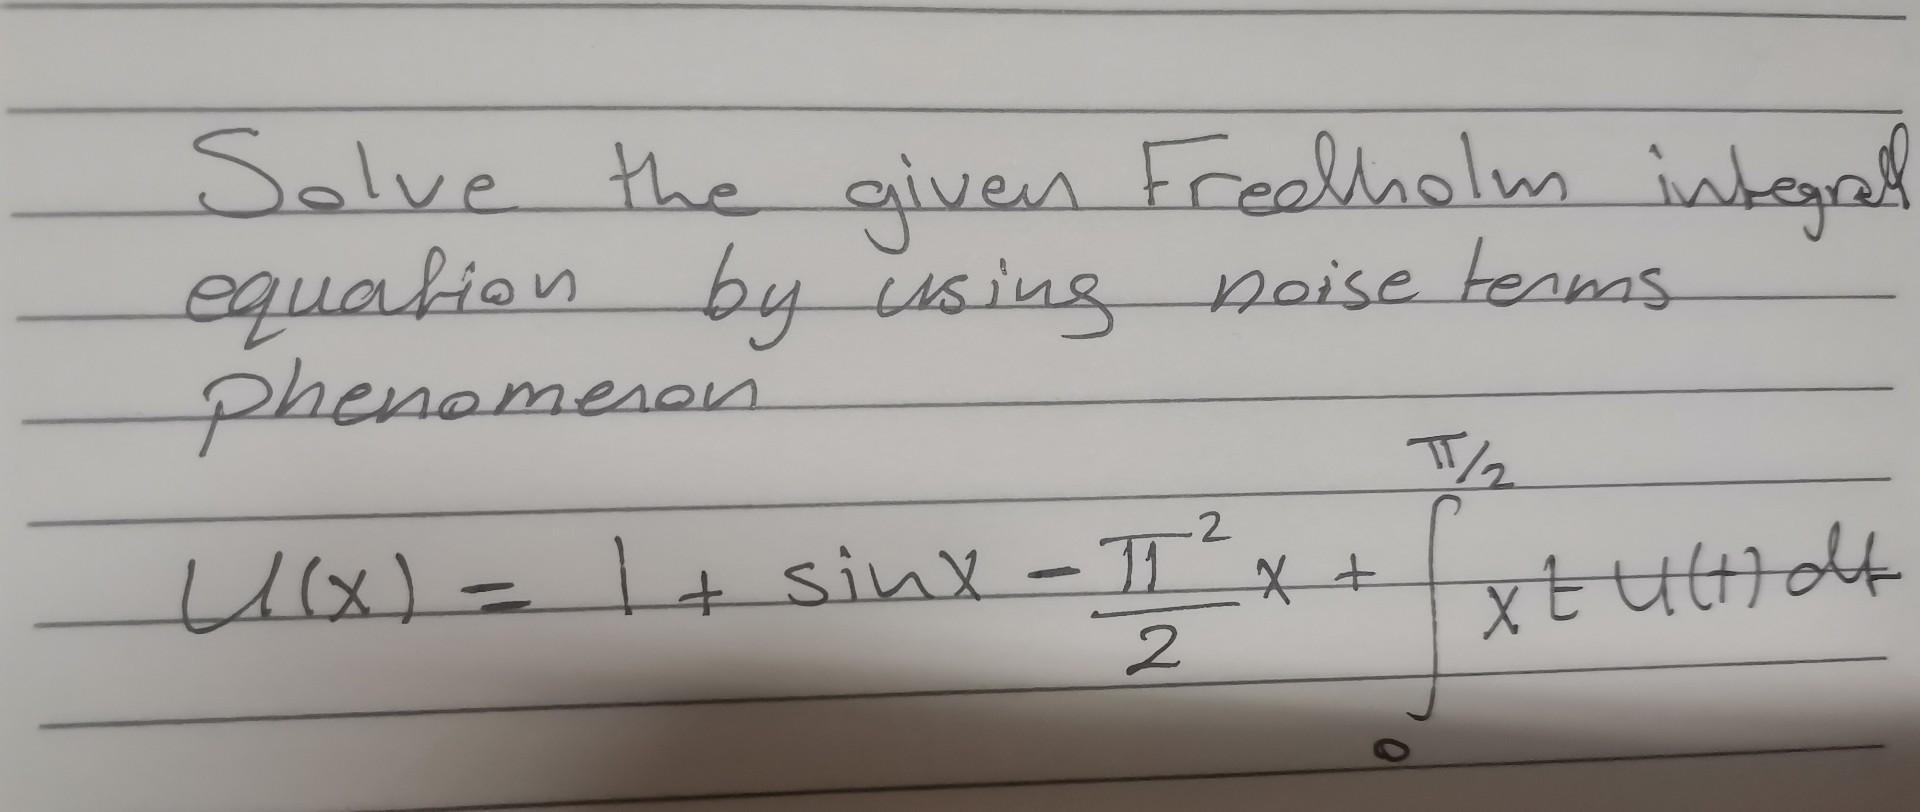 Solve the given Fredholm integral
equation by using noise terms
phenomenon
U(x) = 1 + sinx - π²/2 x + ∫₀^π/2 x t U(t) dt